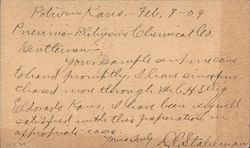 Potwin Kans. Feb. 8-09
Pneumo-Phthysine Chemical Co.
Gentlemen-
Your sample sent me came
to hand promptly, I have since pur
chased more through M. C. H. Selig
Eldorado Kans, I have been very well
satisfied with this preparation in
appropriate cases.
Yours truly